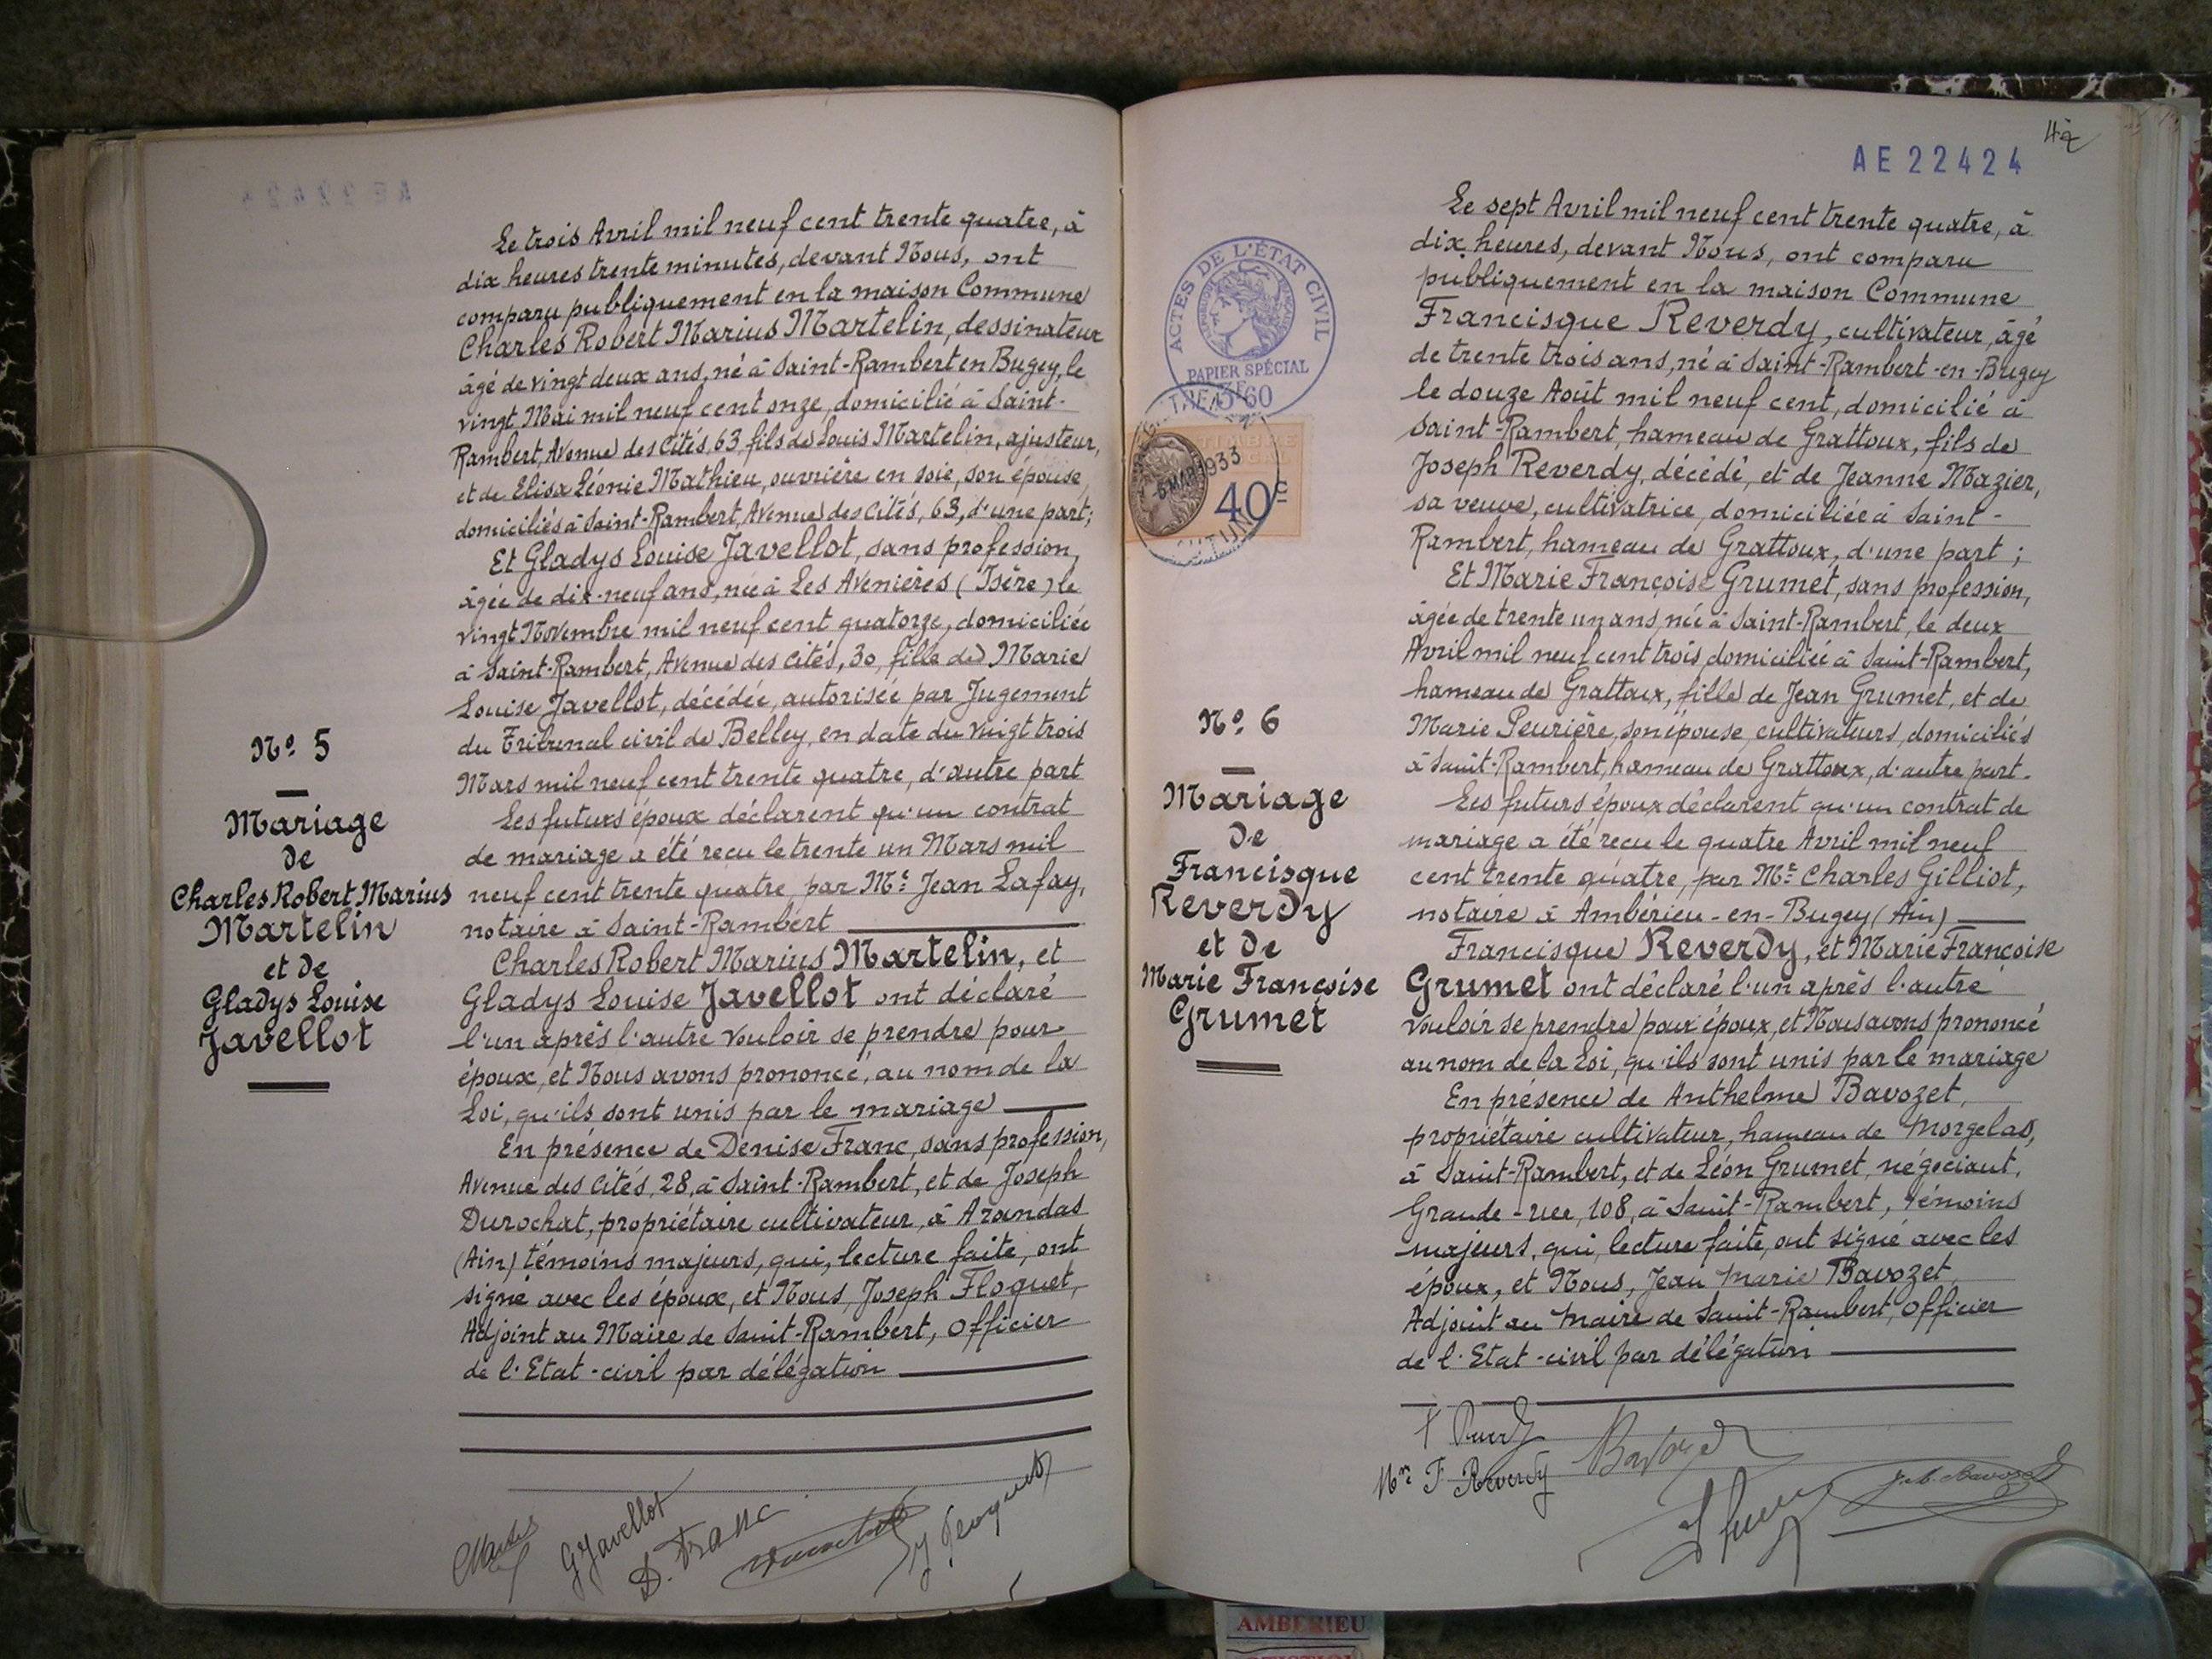 Le trois Avril mil neuf cent trente quatre, à
dix heures trente minutes, devant Nous, ont
comparu publiquement en la maison Commune
Charles Robert Marius Martelin, dessinateur
âgé de vingt deux ans, né à Saint-Rambert en Bugey, le
vingt Mai mil neuf cent onze, domicilié à Saint-
Rambert, Avenue des Cités, 63, fils de Louis Martelin, ajusteur,
et de Elisa Léonie Mathieu, ouvrière en soie, son épouse,
domiciliés à Saint-Rambert, Avenue des Cités, 63, d'une part;
Et Gladys Louise Javellot, sans profession,
âgée de dix-neuf ans, née à Les Avenières (Isère) le
vingt Novembre mil neuf cent quatorze, domiciliée
à Saint-Rambert, Avenue des Cités, 30, fille de Marie
Louise Javellot, décédée, autorisée par Jugement
du Tribunal civil de Belley, en date du vingt trois
Mars mil neuf cent trente quatre, d'autre part
Les futurs époux déclarent qu'un contrat
de mariage a été recu le trente un Mars mil
neuf cent trente quatre par Me Jean Lafay,
notaire à Saint-Rambert
Charles Robert Marius Martelin, et
Gladys Louise Javellot ont déclaré
l'un après l'autre vouloir se prendre pour
époux, et Nous avons prononcé, au nom de la
Loi, qu'ils sont unis par le mariage
En présence de Denise Franc, sans profession,
Avenue des Cités, 28, à Saint-Rambert, et de Joseph
Durochat, propriétaire cultivateur, à Arandas
(Ain) témoins majeurs, qui, lecture faite, ont
signé avec les époux, et Nous, Joseph Floquet,
Adjoint au Maire de Saint-Rambert, Officier
de l'Etat-civil par délégation
No 5
Mariage
de
Charles Robert Marius
Martelin
et de
Gladys Louise
Javellot
GJavellot
D. Franc
J Floquet
42
AE 22424
ACTES DE L'ÉTAT CIVIL
PAPIER SPÉCIAL
3F60
6 MAR 1933
40c
Le sept Avril mil neuf cent trente quatre, à
dix heures, devant Nous, ont comparu
publiquement en la maison Commune
Francisque Reverdy, cultivateur, âgé
de trente trois ans, né à Saint-Rambert-en-Bugey
le douze Août mil neuf cent, domicilié à
Saint-Rambert, hameau de Grattoux, fils de
Joseph Reverdy, décédé, et de Jeanne Mazier,
sa veuve, cultivatrice, domiciliée à Saint-
Rambert, hameau de Grattoux, d'une part;
Et Marie Françoise Grumet, sans profession,
âgée de trente un ans, née à Saint-Rambert, le deux
Avril mil neuf cent trois, domiciliée à Saint-Rambert,
hameau de Grattoux, fille de Jean Grumet, et de
Marie Peurière, son épouse, cultivateurs, domiciliés
à Saint-Rambert, hameau de Grattoux, d'autre part.
Les futurs époux déclarent qu'un contrat de
mariage a été recu le quatre Avril mil neuf
cent trente quatre, par Me Charles Gilliot,
notaire à Ambérieu-en-Bugey (Ain)
Francisque Reverdy, et Marie Françoise
Grumet ont déclaré l'un après l'autre
vouloir se prendre pour époux, et Nous avons prononcé
au nom de la Loi, qu'ils sont unis par le mariage
En présence de Anthelme Bavozet,
propriétaire cultivateur, hameau de Morgelas,
à Saint-Rambert, et de Léon Grumet, négociant,
Grande-rue, 108, à Saint-Rambert, témoins
majeurs, qui, lecture faite, ont signé avec les
époux, et Nous, Jean Marie Bavozet,
Adjoint au Maire de Saint-Rambert, Officier
de l'Etat-civil par délégation
No 6
Mariage
de
Francisque
Reverdy
et de
Marie Françoise
Grumet
Bavozet
F Reverdy
J.M. Bavozet
AMBERIEU